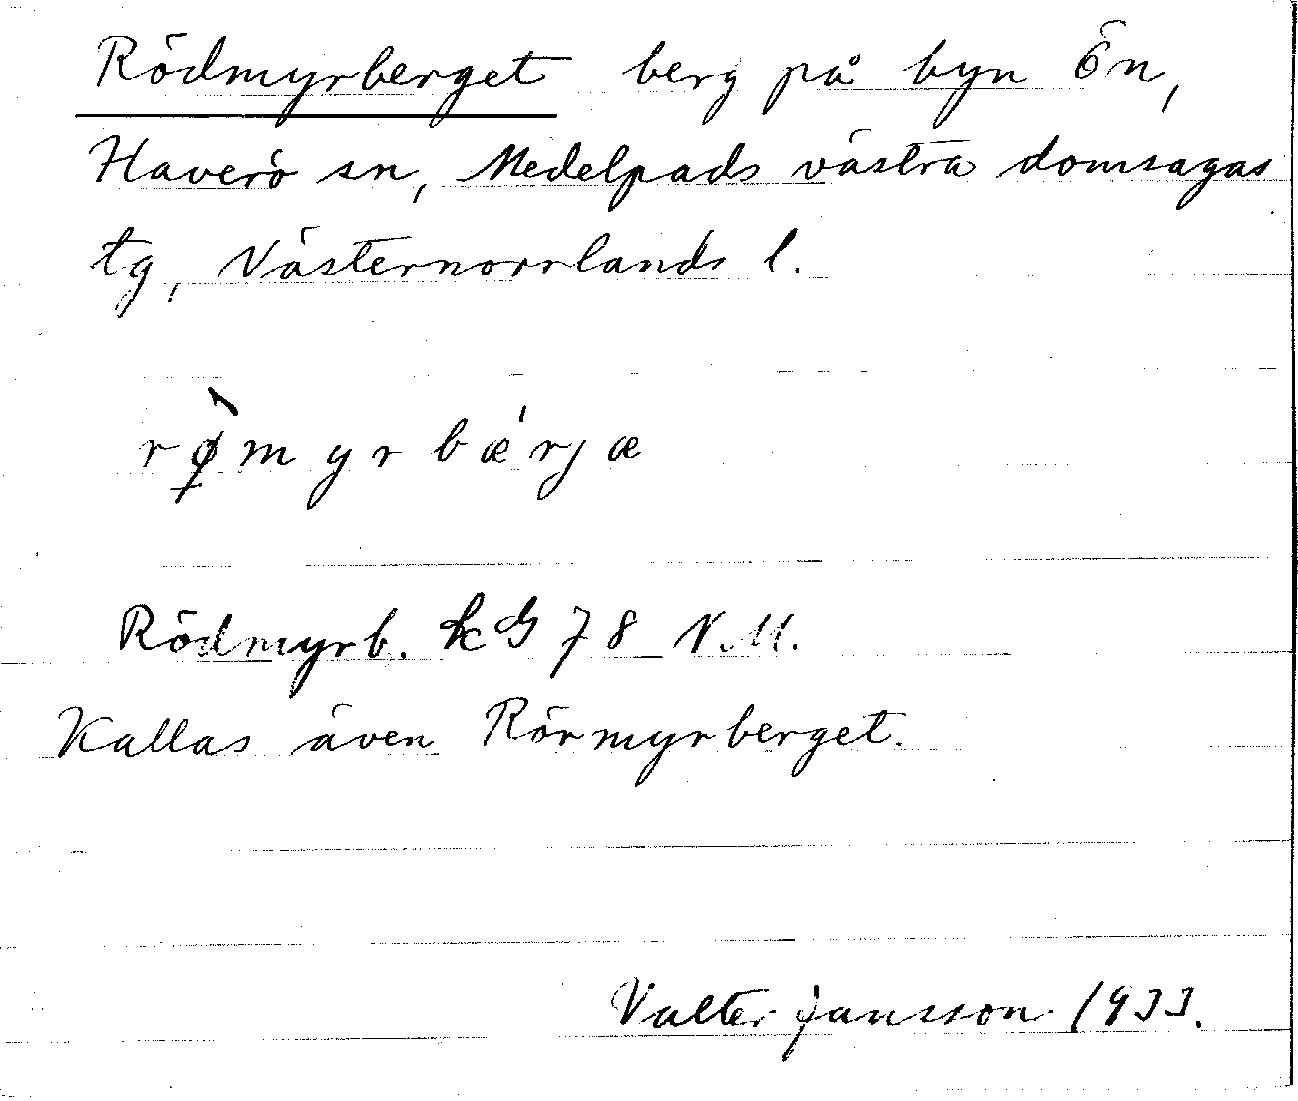 Rödmyrberget berg på byn Ön,
Haverö sn, Medelpads västra domsagas
tg, Västernorrlands l.
rø̀myrbǽrjæ
Rödmyrb. kG 78 N.M.
Kallas även Rörmyrberget.
Valter Jansson 1933.